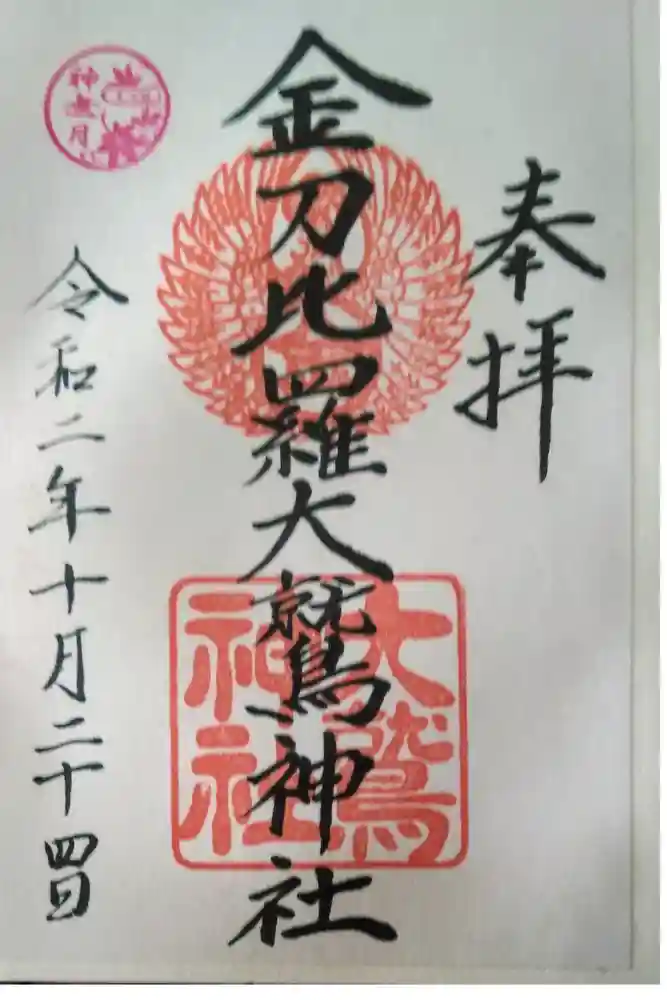 奉拝
金刀比羅大鷲神社
大鷲
神社
神無月
令和二年十月二十四日